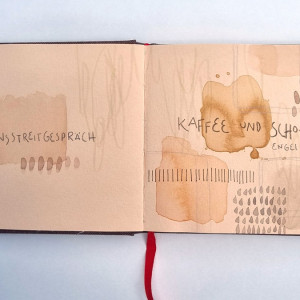 NSSTREITGESPRÄCH
KAFFEE UND SCHO
ENGEL